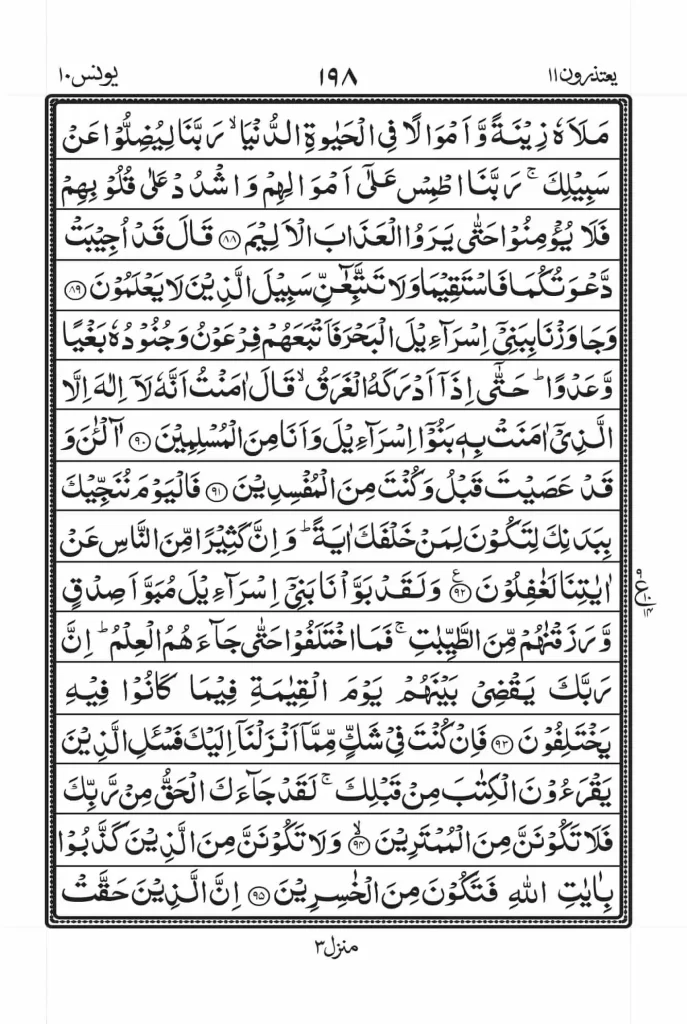 یعتذرون ۱۱ ۱۹۸ یونس ۱۰
مَلَاَهٗ زِيْنَةً وَّاَمْوَالًا فِى الْحَيٰوةِ الدُّنْيَا ۙ رَبَّنَا لِيُضِلُّوْا عَنْ
سَبِيْلِكَ ۚ رَبَّنَا اطْمِسْ عَلٰٓى اَمْوَالِهِمْ وَاشْدُدْ عَلٰى قُلُوْبِهِمْ
فَلَا يُؤْمِنُوْا حَتّٰى يَرَوُا الْعَذَابَ الْاَلِيْمَ ﴿۸۸﴾ قَالَ قَدْ اُجِيْبَتْ
دَّعْوَتُكُمَا فَاسْتَقِيْمَا وَلَا تَتَّبِعٰٓنِّ سَبِيْلَ الَّذِيْنَ لَا يَعْلَمُوْنَ ﴿۸۹﴾
وَجَاوَزْنَا بِبَنِىْٓ اِسْرَآءِيْلَ الْبَحْرَ فَاَتْبَعَهُمْ فِرْعَوْنُ وَجُنُوْدُهٗ بَغْيًا
وَّعَدْوًا ؕ حَتّٰٓى اِذَآ اَدْرَكَهُ الْغَرَقُ ۙ قَالَ اٰمَنْتُ اَنَّهٗ لَآ اِلٰهَ اِلَّا
الَّذِىْٓ اٰمَنَتْ بِهٖ بَنُوْٓا اِسْرَآءِيْلَ وَاَنَا مِنَ الْمُسْلِمِيْنَ ﴿۹۰﴾ آٰلْـٰٔنَ وَ
قَدْ عَصَيْتَ قَبْلُ وَكُنْتَ مِنَ الْمُفْسِدِيْنَ ﴿۹۱﴾ فَالْيَوْمَ نُنَجِّيْكَ
بِبَدَنِكَ لِتَكُوْنَ لِمَنْ خَلْفَكَ اٰيَةً ؕ وَاِنَّ كَثِيْرًا مِّنَ النَّاسِ عَنْ
اٰيٰتِنَا لَغٰفِلُوْنَ ﴿۹۲﴾ ع وَلَقَدْ بَوَّاْنَا بَنِىْٓ اِسْرَآءِيْلَ مُبَوَّاَ صِدْقٍ
۹ ع ۱۰ ۱۴
وَّرَزَقْنٰهُمْ مِّنَ الطَّيِّبٰتِ ۚ فَمَا اخْتَلَفُوْا حَتّٰى جَآءَهُمُ الْعِلْمُ ؕ اِنَّ
رَبَّكَ يَقْضِىْ بَيْنَهُمْ يَوْمَ الْقِيٰمَةِ فِيْمَا كَانُوْا فِيْهِ
يَخْتَلِفُوْنَ ﴿۹۳﴾ فَاِنْ كُنْتَ فِىْ شَكٍّ مِّمَّآ اَنْزَلْنَآ اِلَيْكَ فَسْـَٔلِ الَّذِيْنَ
يَقْرَءُوْنَ الْكِتٰبَ مِنْ قَبْلِكَ ۚ لَقَدْ جَآءَكَ الْحَقُّ مِنْ رَّبِّكَ
فَلَا تَكُوْنَنَّ مِنَ الْمُمْتَرِيْنَ ﴿۹۴﴾ ۙ وَلَا تَكُوْنَنَّ مِنَ الَّذِيْنَ كَذَّبُوْا
بِاٰيٰتِ اللّٰهِ فَتَكُوْنَ مِنَ الْخٰسِرِيْنَ ﴿۹۵﴾ اِنَّ الَّذِيْنَ حَقَّتْ
منزل ۳